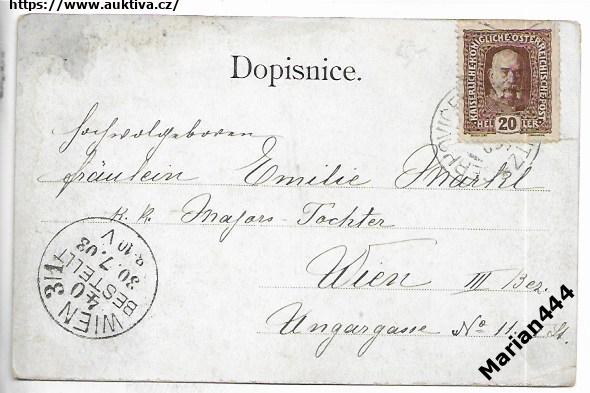 https://www.auktiva.cz/
Dopisnice.
KAISERLICHE KÖNIGLICHE ÖSTERREICHISCHE POST
20
HELLER
Hochwolgeboren
Fräulein Emilie Märkl
k. k. Majors-Tochter
Wien III Bez.
Ungargasse No 11.
WIEN 3/1
40
BESTELLT
30 7.03
9-10 V
Marian444